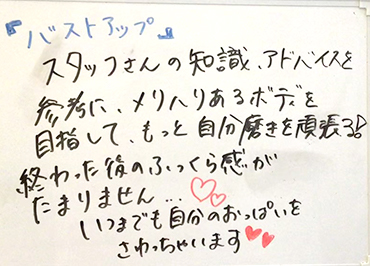 『バストアップ』
スタッフさんの知識、アドバイスを
参考に、メリハリあるボディを
目指して、もっと自分磨きを頑張る!
終わった後のふっくら感が
たまりません…♡♡
いつまでも自分のおっぱいを
さわっちゃいます♥♥